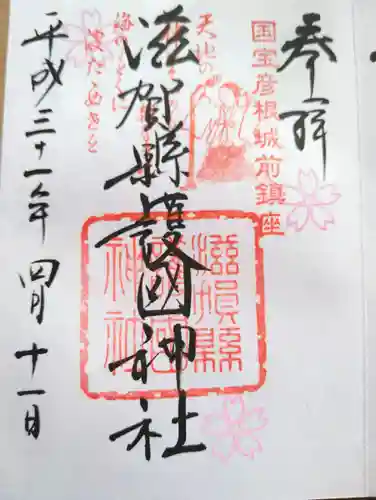 奉拝
国宝彦根城前鎮座
滋賀縣護國神社
滋賀縣護國神社
平成三十一年四月十一日